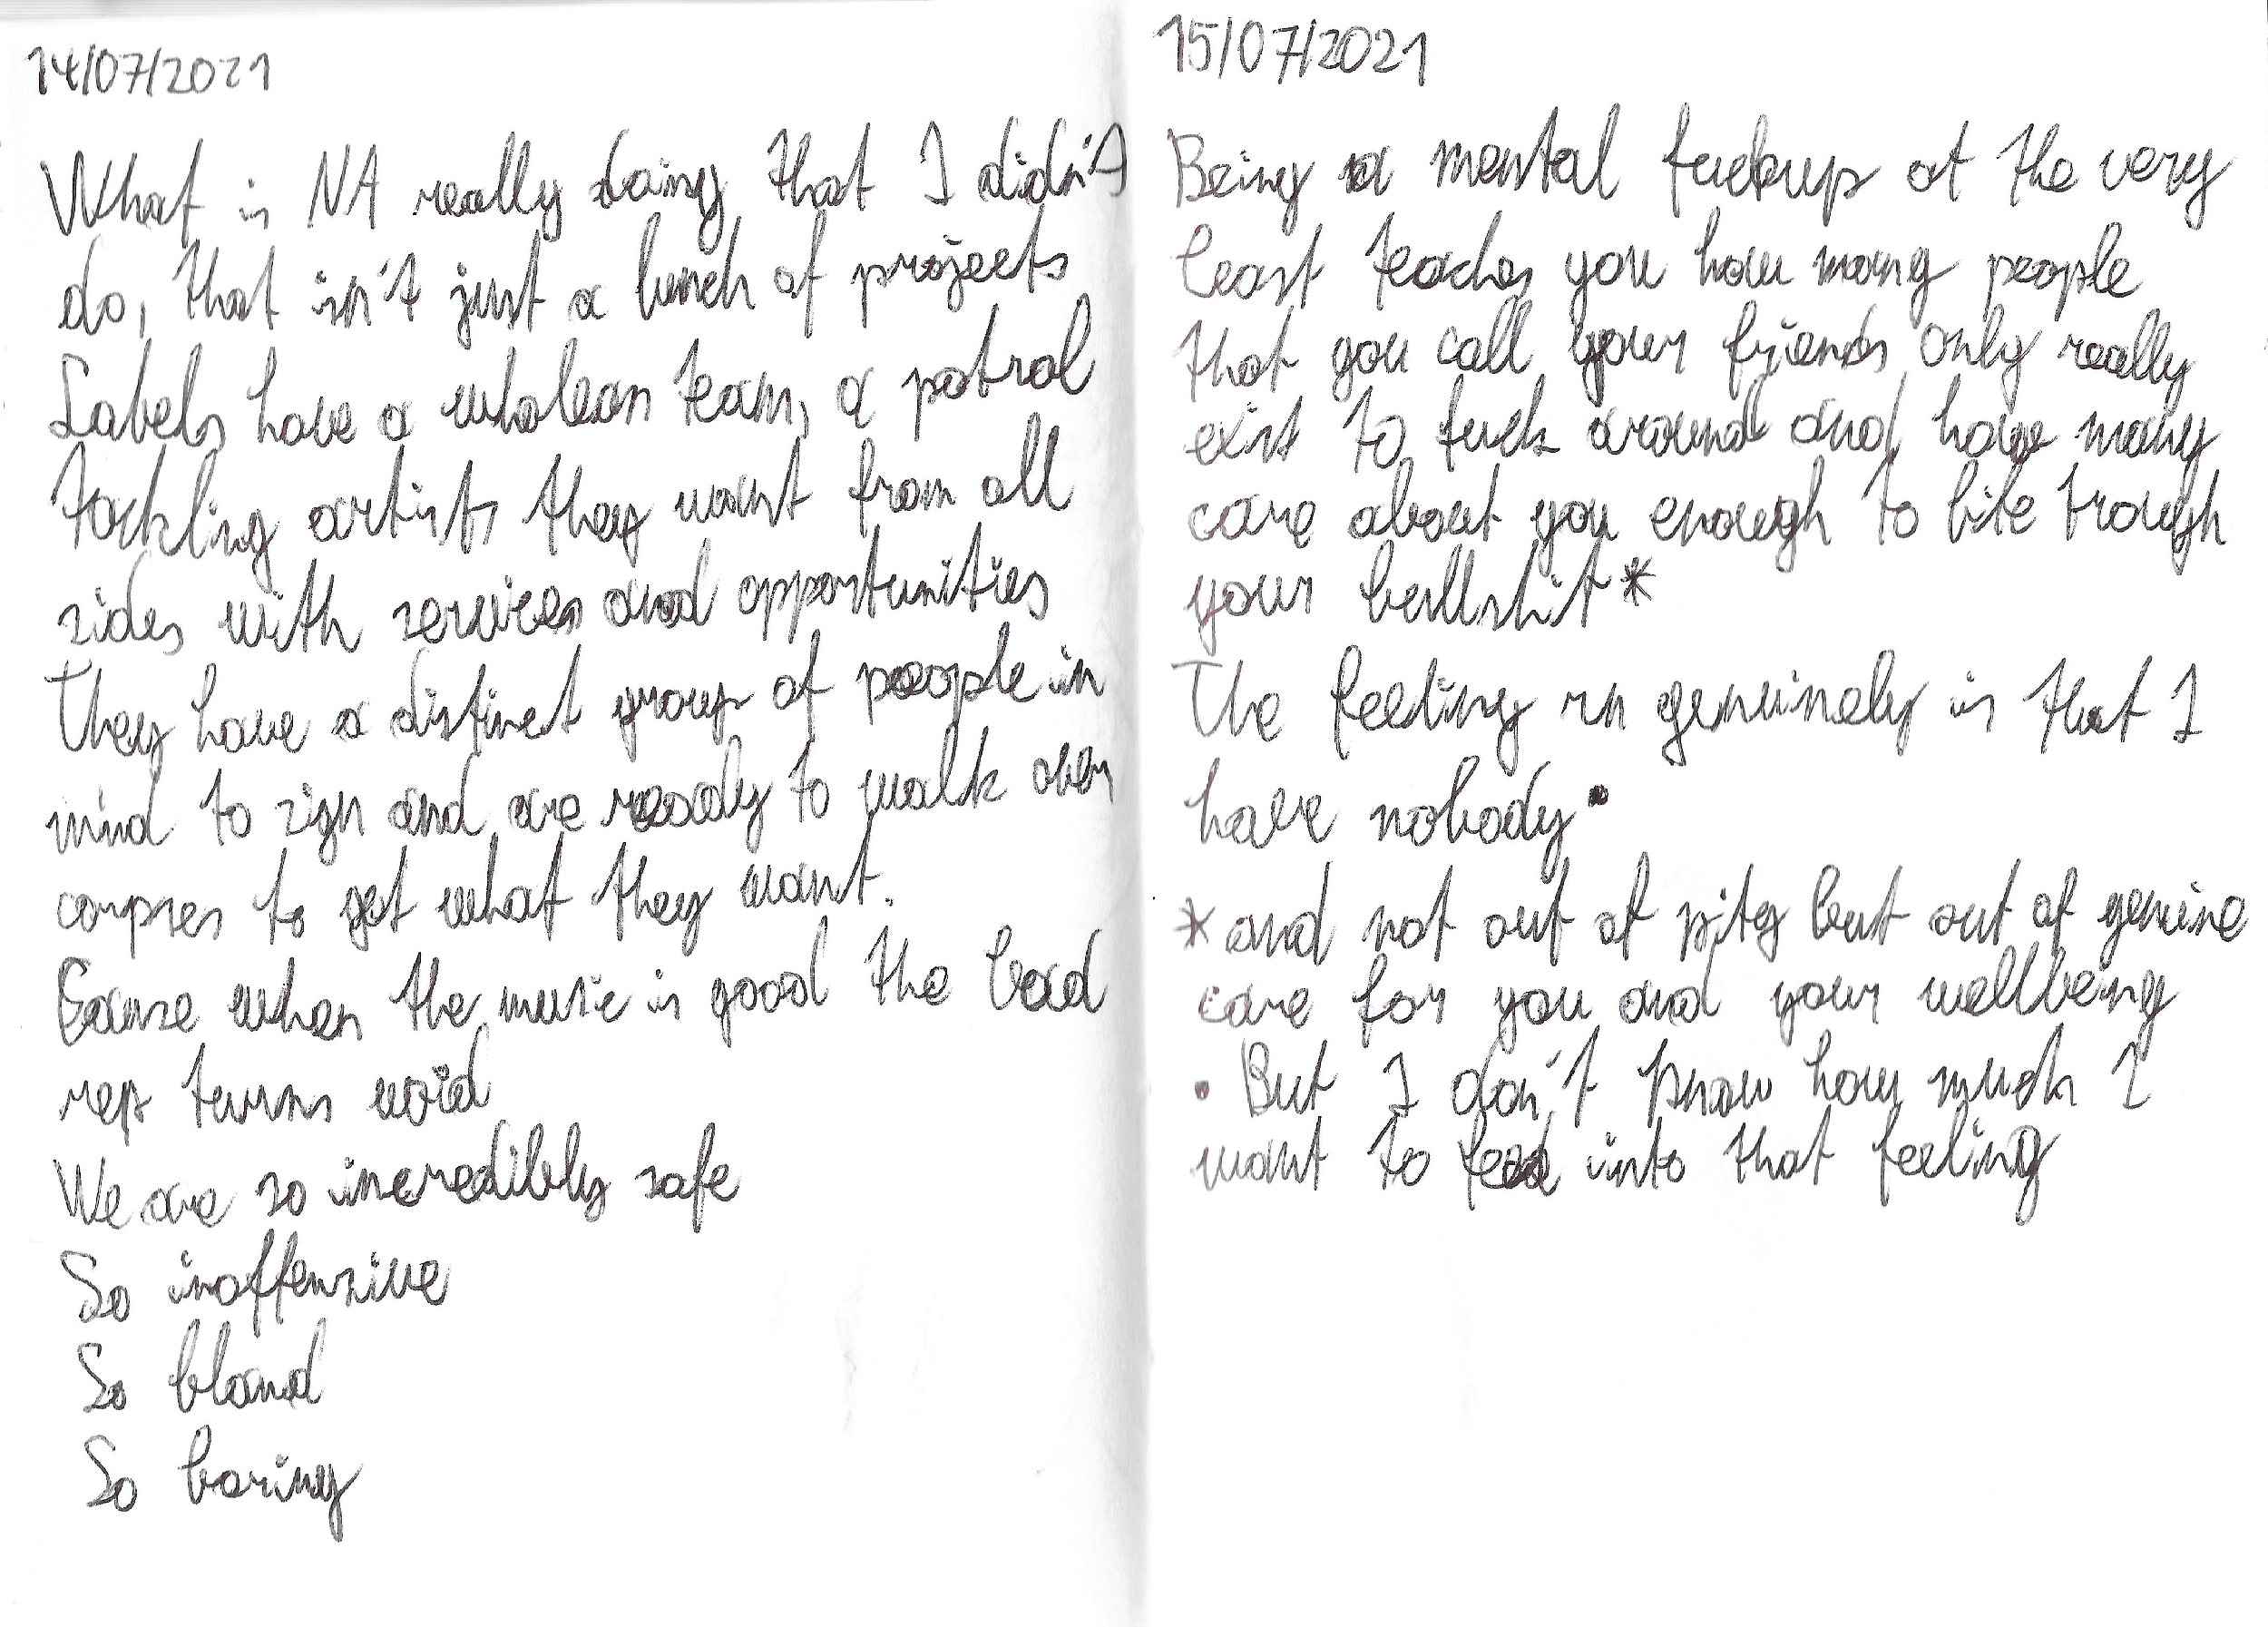 14/07/2021
What is NA really doing that I didn't
do, that isn't just a bunch of projects
Labels have a whole team, a patrol
tackling artists they want from all
sides with services and opportunities
They have a distinct group of people in
mind to sign and are ready to walk over
corpses to get what they want.
Cause when the music is good the bad
rep turns void
We are so incredibly safe
So inoffensive
So bland
So boring
15/07/2021
Being a mental fuckup at the very
least teaches you how many people
that you call your friends only really
exist to fuck around and how many
care about you enough to bite trough
your bullshit*
The feeling rn genuinely is that I
have nobody•
*and not out of pity but out of genuine
care for you and your wellbeing
• But I don't know how much I
want to feed into that feeling